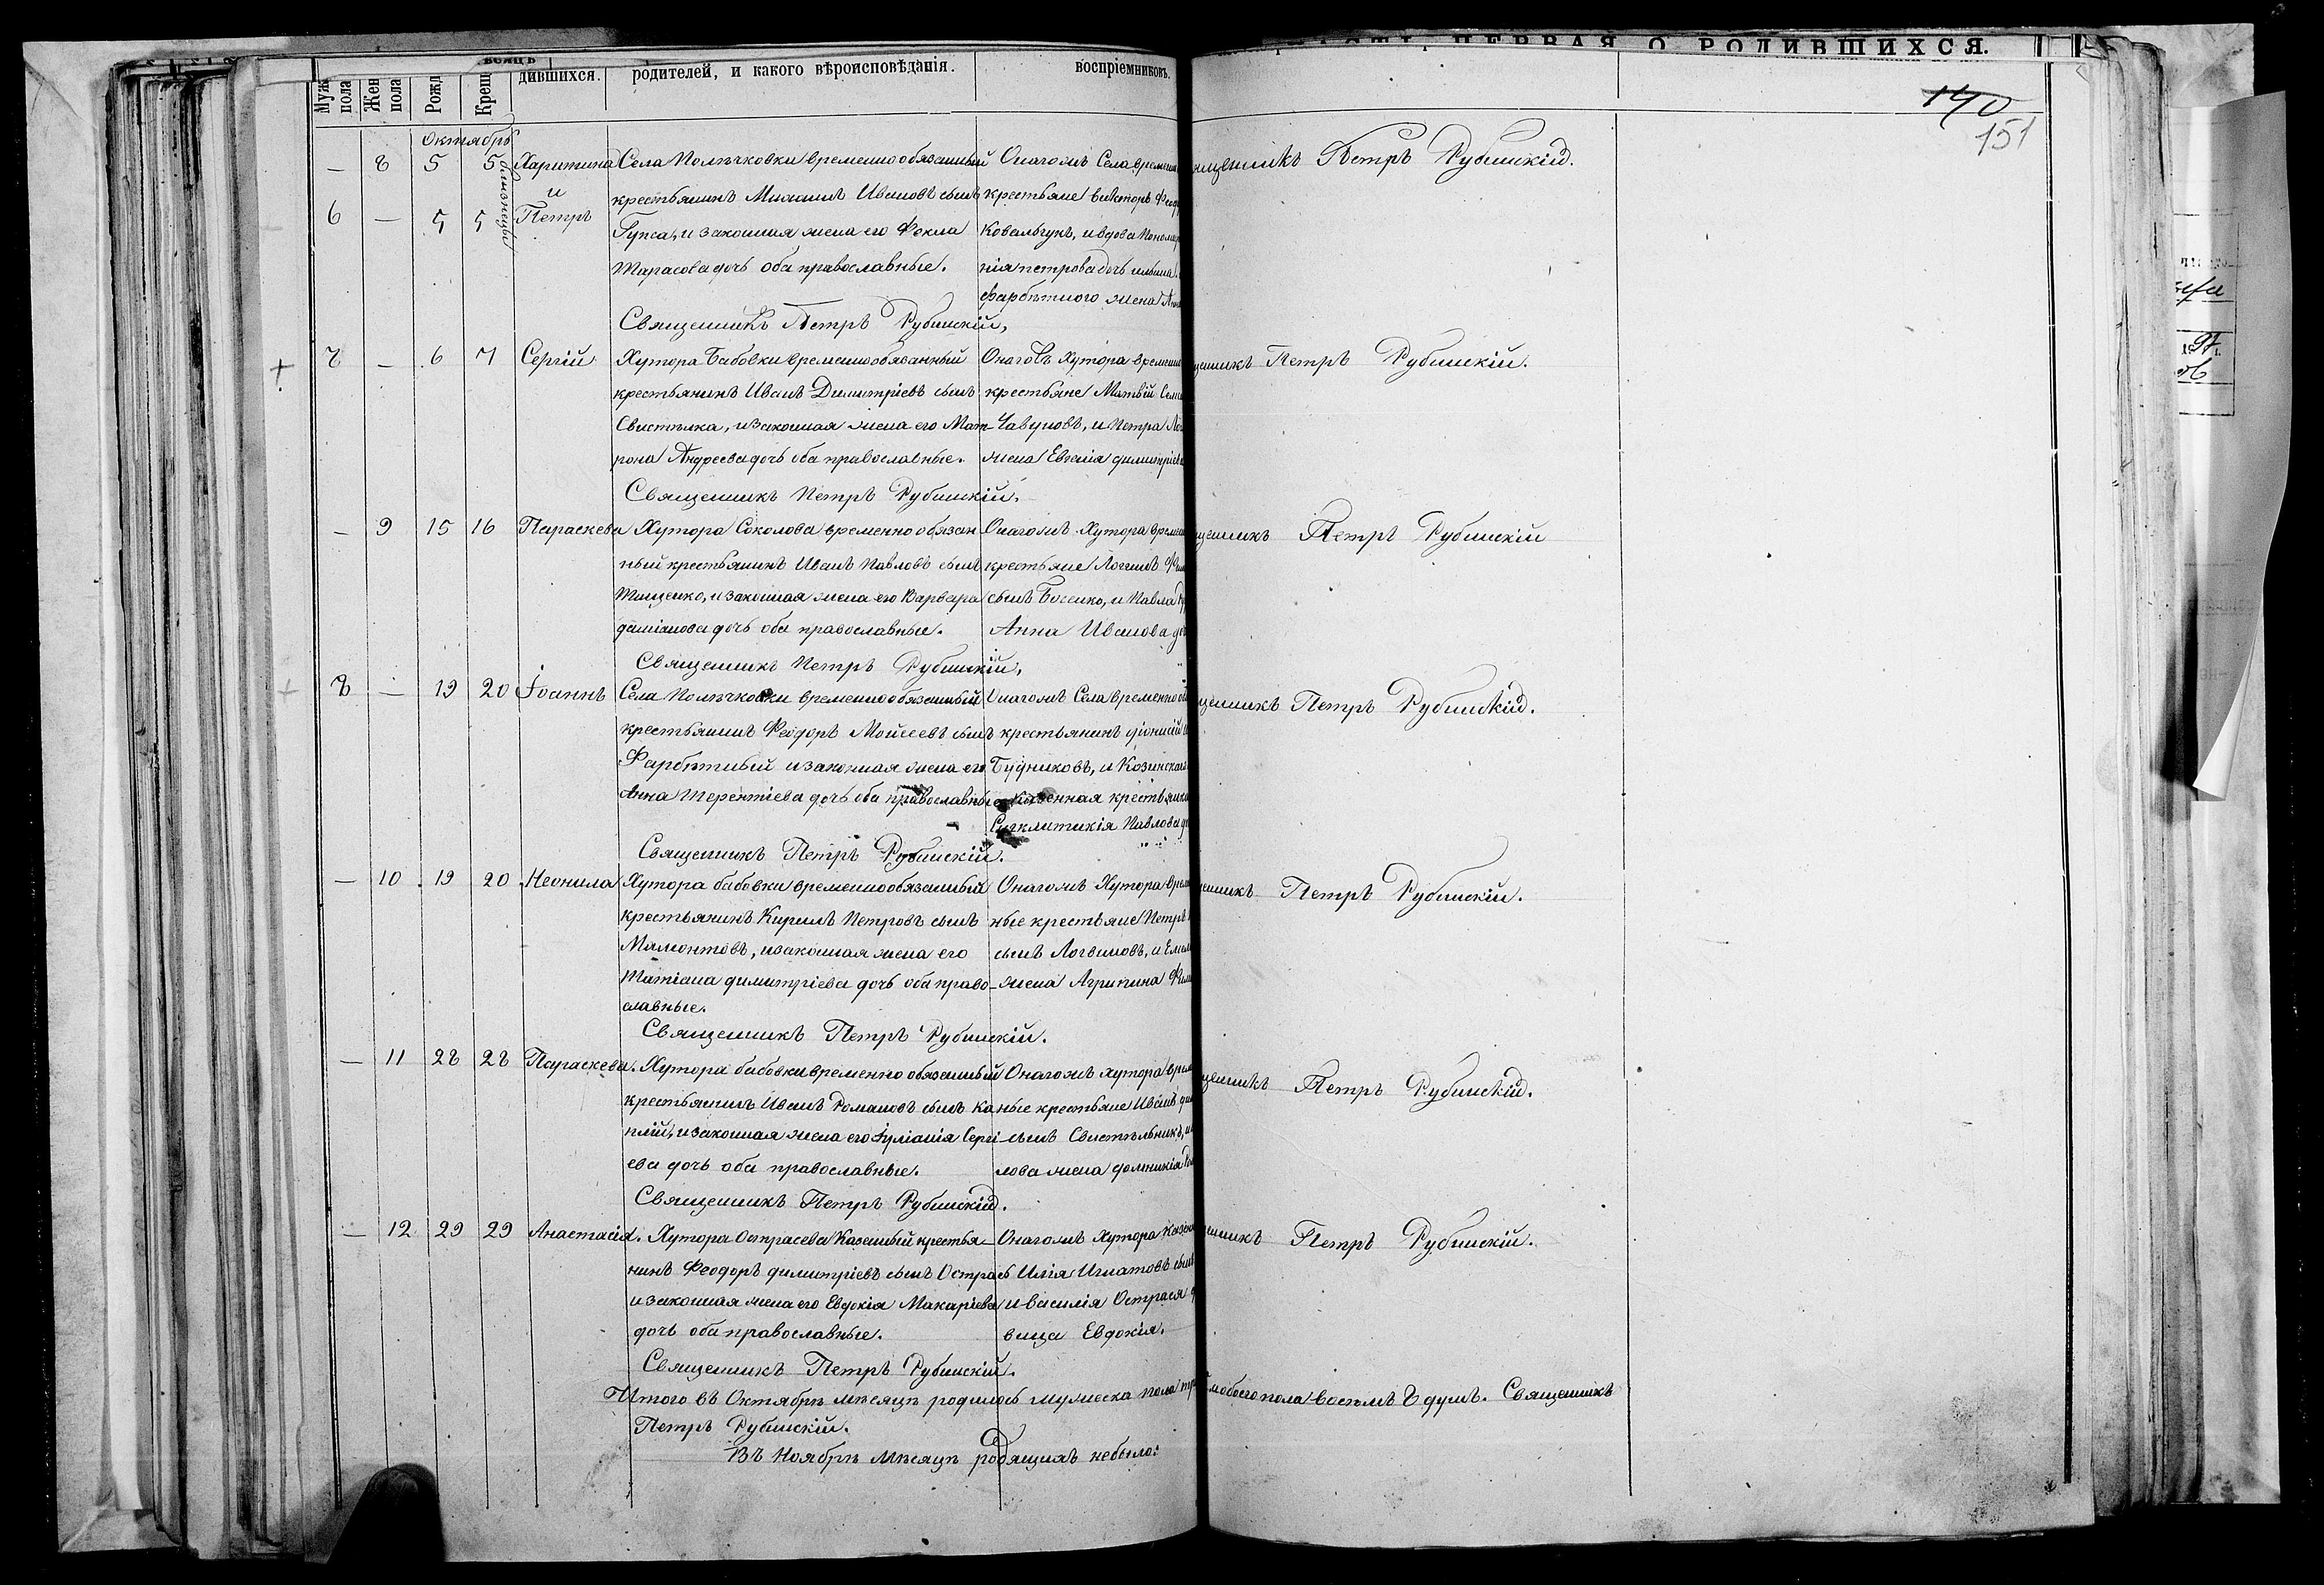 ПЕРВАЯ О РОДИВШИХСЯ.
Муж пола
Жен пола
Рожд
Крещ
дившихся.
родителей, и какого вѣроисповѣданія.
воспріемниковъ.
140
151
Октябрь
близнецы
— 8 5 5 Харитина Села Полѣчковки временнообязанный Онагожъ Села времен
и
крестьянинъ Михаилъ Ивановъ сынъ крестьяне Викторъ Феод
6 — 5 5 Петръ
Гупса, и законная жена его Фекла Ковальчукъ, и вдова
Тарасова дочь оба православные. нія Петрова дочь
Фарбѣтного жена
Священникъ Петръ Рубинскій.
ященникъ Петръ Рубинскій.
7 — 6 7 Сергій Хутора Бабовки временнообязанный Онагожъ Хутора времен
крестьянинъ Иванъ Димитріевъ сынъ крестьяне Матвій Семе
Свистѣлка, и законная жена его Мат- Чавуновъ, и Петра
рона Андреева дочь оба православные. жена Евгенія Димитріева
Священникъ Петръ Рубинскій.
щенникъ Петръ Рубинскій.
— 9 15 16 Параскева Хутора Соколова временно обязан Онагожъ Хутора времен
ный крестьянинъ Иванъ Павловъ сынъ крестьяне Логгинъ
Тищенко, и законная жена его Варвара сынъ Босенко, и Павла
Даміанова дочь оба православные. Анна Иванова до
Священникъ Петръ Рубинскій.
щенникъ Петръ Рубинскій
8 — 19 20 Іоаннъ Села Полѣчковки временнообязанный Онагожъ Села временно
крестьянинъ Феодоръ Мойсеевъ сынъ крестьянинъ Діонисій
Фарбѣтный и законная жена его Будниковъ, и Козинская
Анна Терентіева дочь оба православные казенная крестьянка
Сигклитикія Павлова до
Священникъ Петръ Рубинскій.
щенникъ Петръ Рубинскій.
— 10 19 20 Неонила Хутора бабовки временнообязанный Онагожъ Хутора врем
крестьянинъ Кирилъ Петровъ сынъ ные крестьяне Петръ
Мамонтовъ, и законная жена его сынъ Логвиновъ, и
Татіана Димитріева дочь оба право- жена Агрипина
славные.
Священникъ Петръ Рубинскій.
щенникъ Петръ Рубинскій.
— 11 28 28 Параскева. Хутора бабовки временно обязанный Онагожъ хутора врем
крестьянинъ Иванъ Романовъ сынъ Ка ные крестьяне Иванъ
плій, и законная жена его Іуліанія Сергі- сынъ Свистѣльникъ, и
ева дочь оба православные. лова жена Домникія
Священникъ Петръ Рубинскій.
щенникъ Петръ Рубинскій.
— 12 29 29 Анастасія. Хутора Острасева Казенный крестья- Онагожъ Хутора Казен
нинъ Феодоръ Димитріевъ сынъ Острась Илія Игнатовъ сынъ
и законная жена его Евдокія Макаріева и Василія Острася
дочь оба православные. вица Евдокія.
Священникъ Петръ Рубинскій.
щенникъ Петръ Рубинскій.
Итого въ Октябрѣ мѣсяцѣ родилось мужеска пола обоего пола восемь 8 душъ. Священникъ
Петръ Рубинскій.
Въ Ноябрѣ мѣсяцѣ родящихъ небыло: